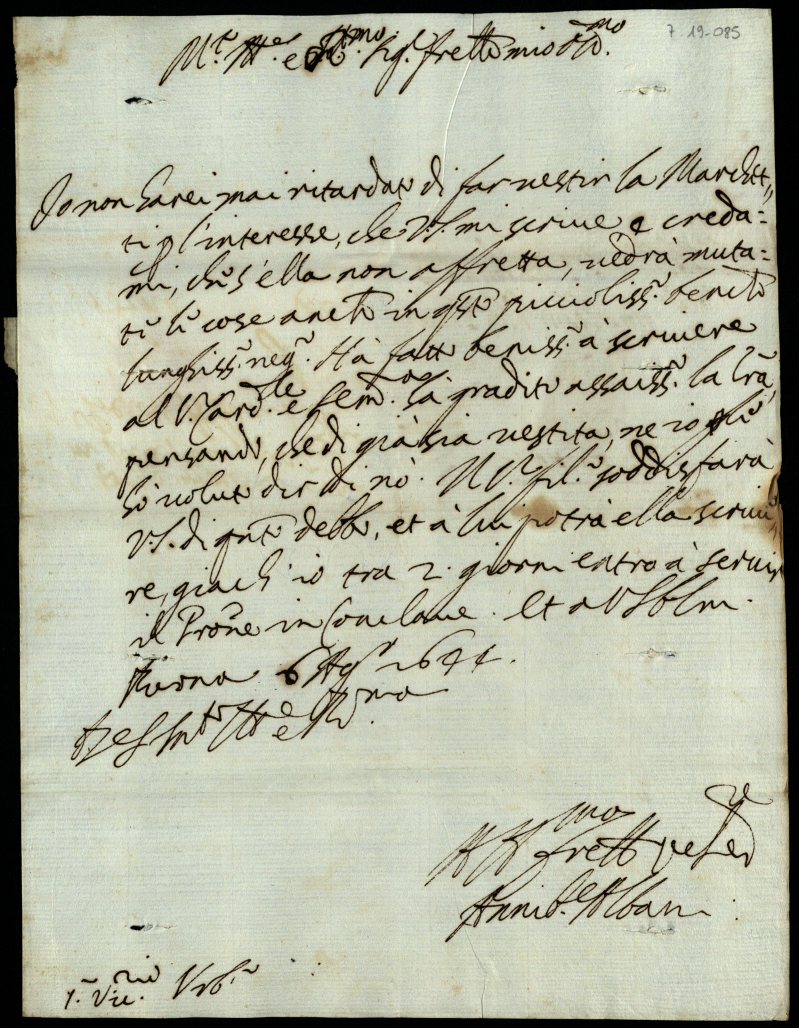 7 19-085
M.to Ill.re e R.mo Sig.r fratello mio oss.mo
Io non harei mai ritardato di far vestir la Marchet„
ti p l'interesse, che V.S. mi scrive, e creda=
mi, che s'ella non affretta, vedrà muta=
te le cose anche in qsto piccioliss.o benché
lunghiss.o neg.o. Hà fatto beniss.o à scrivere
al S.r Card.le e Sem.o hà gradito assaiss.o la lrã,
pensando, che di già sia vestita, ne io gli
hò voluto dir di nò. Il S.r fil.o soddisfarà
V.S. di qnto debbo, et à lui potrà ella scriue„
re, giach' io tra 2. giorni entro à servir
il Prone in Conclave. Et a V.S. b l m.
Roma 6 Ag.o 1644.
Di V.S. M.to Ill.re e R.ma
Aff.mo fratello per ser.re
Annib.e Albani
S.r Vic.rio Urb.o